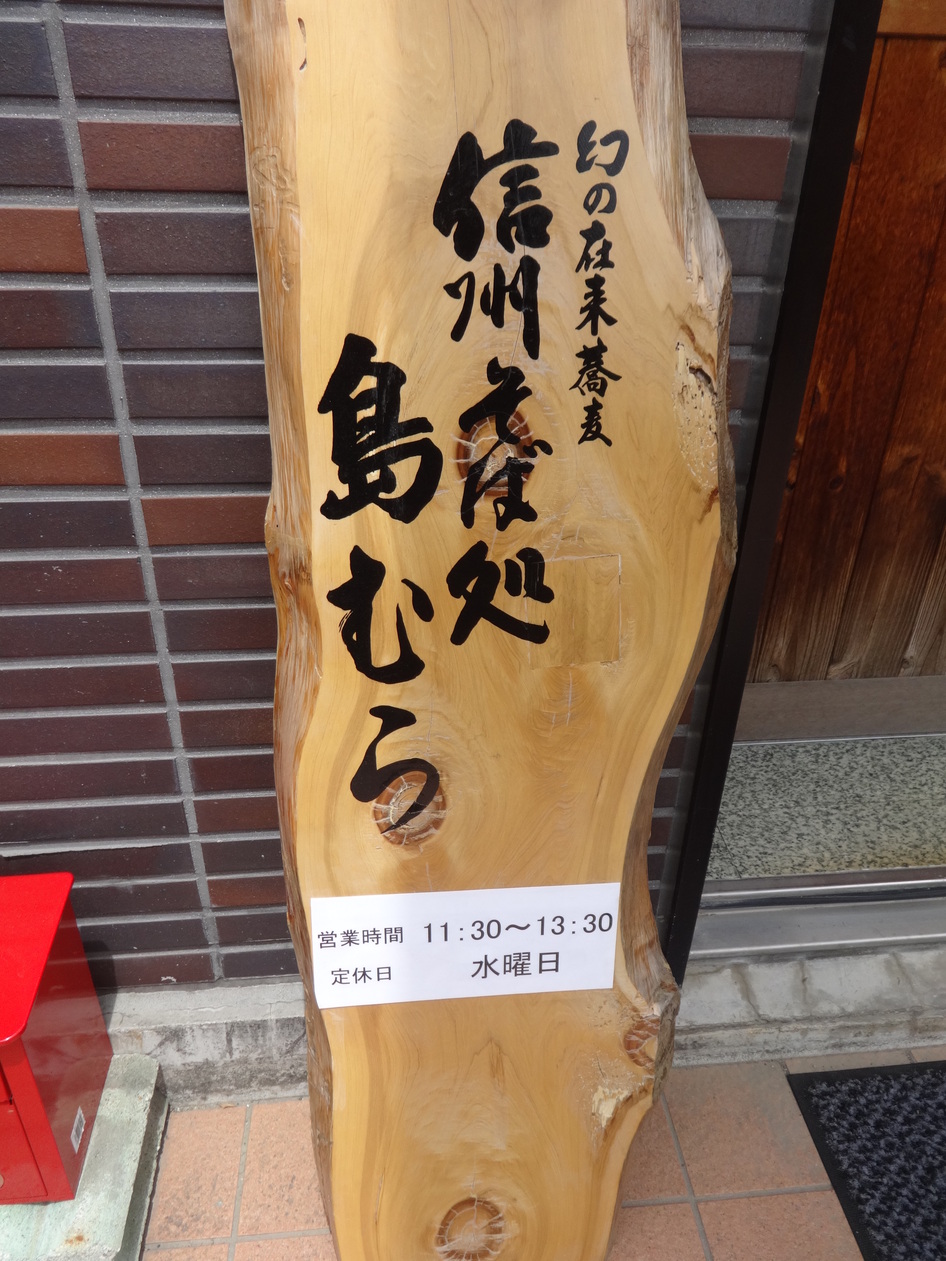 幻の在来蕎麦
信州そば処
島むら
営業時間 11:30～13:30
定休日 水曜日